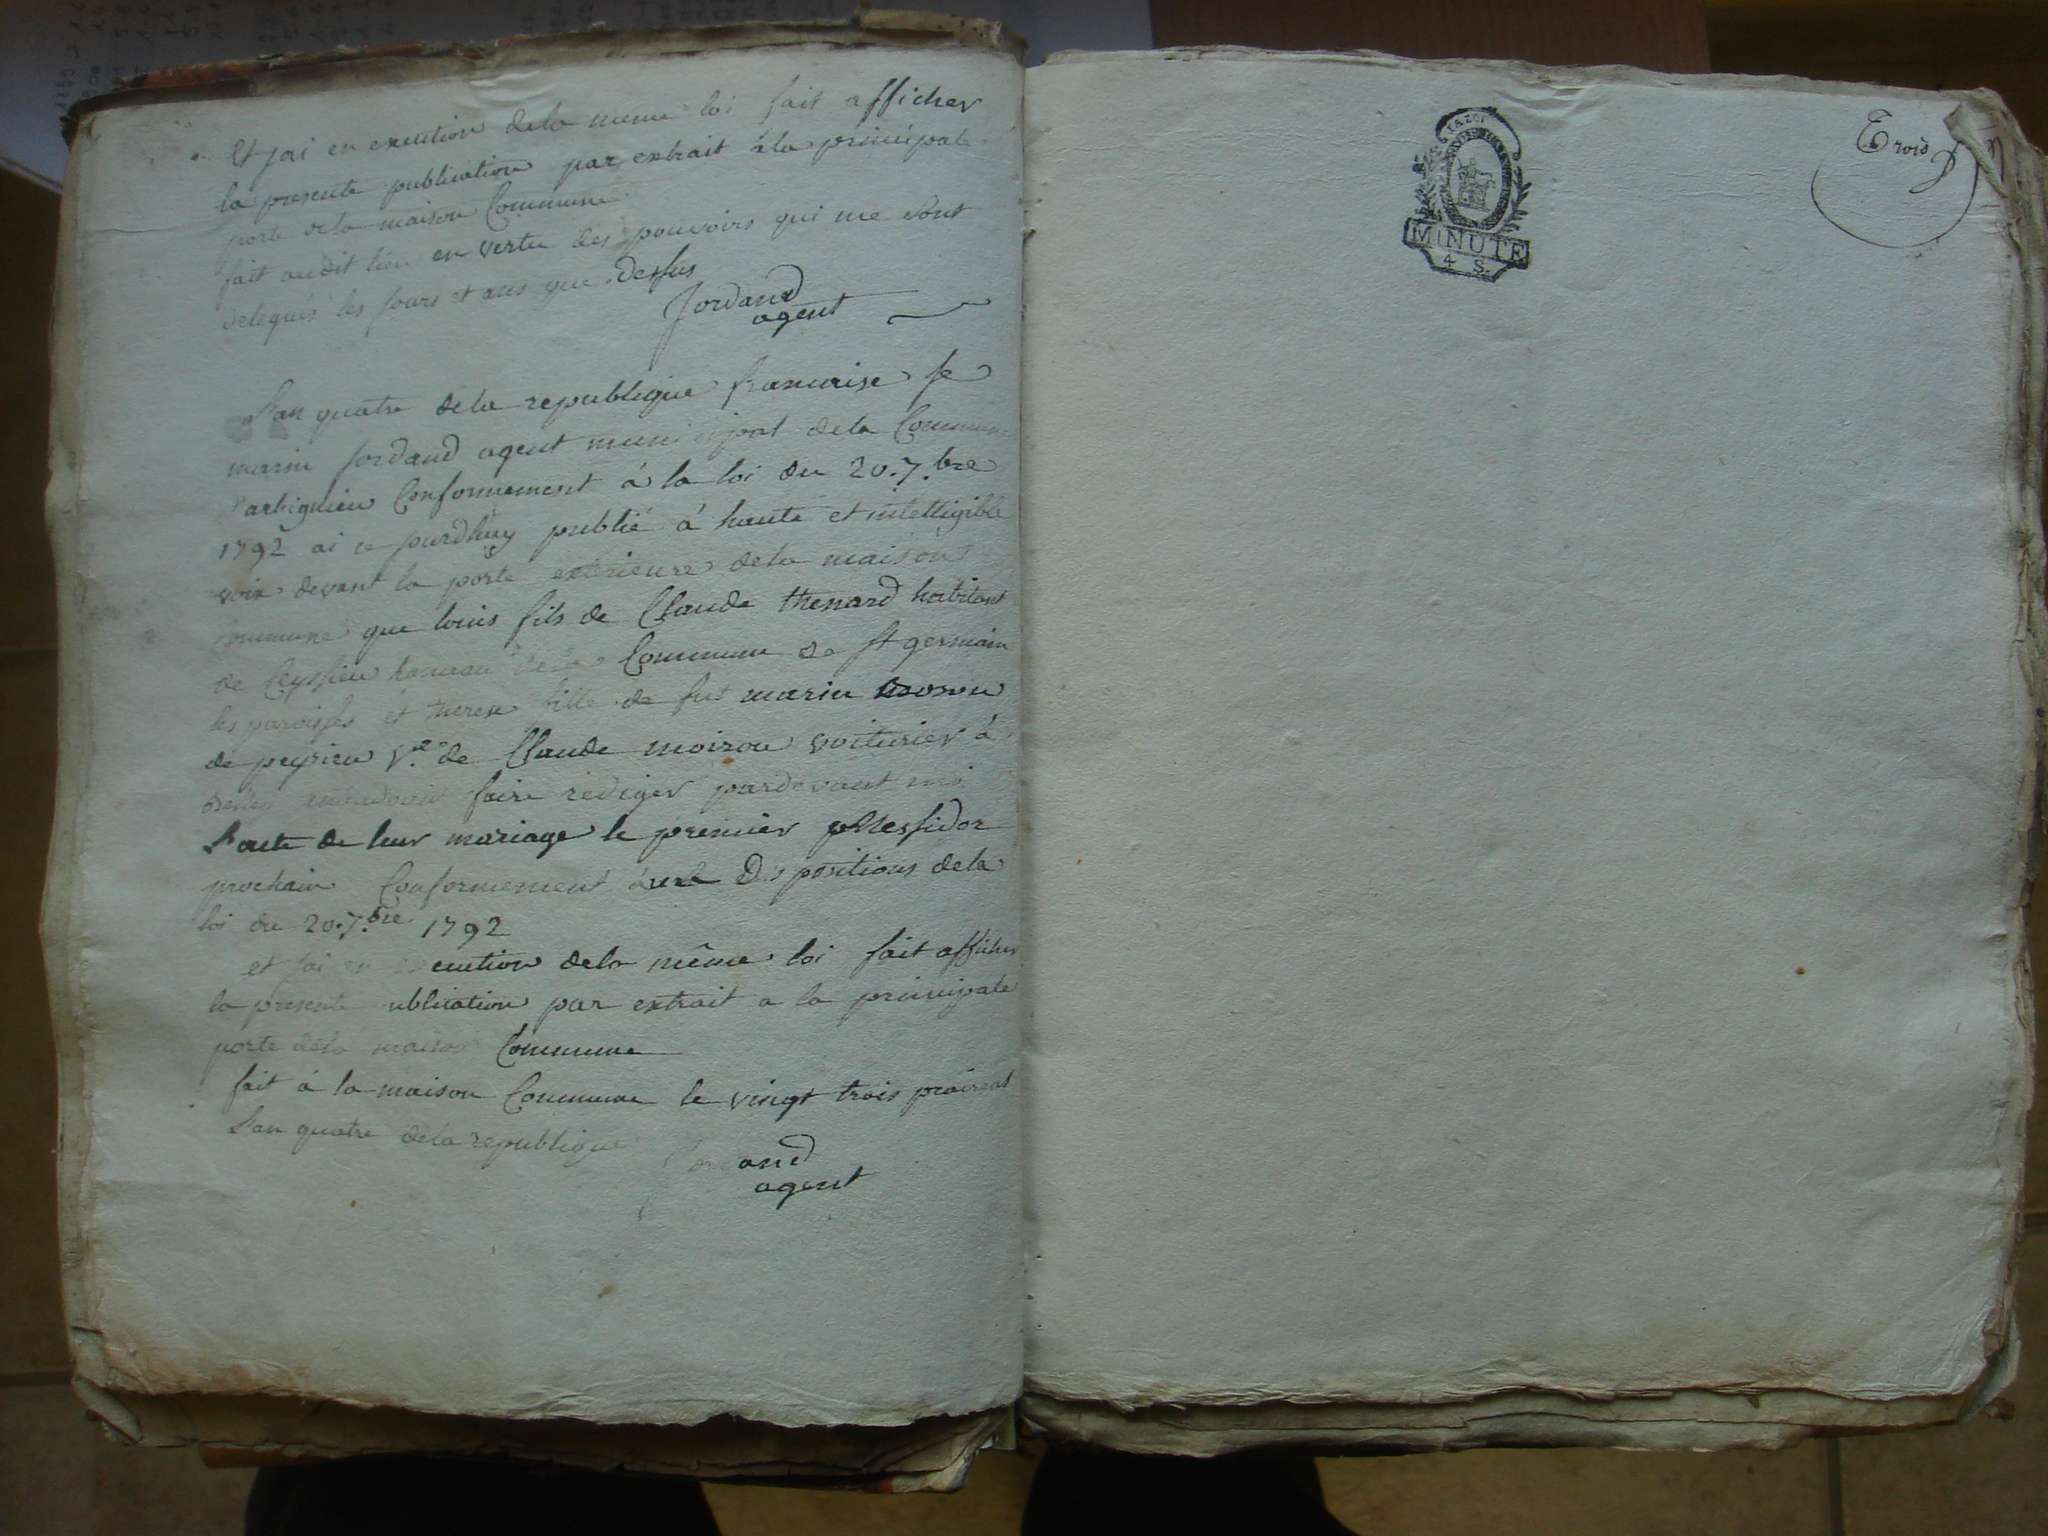 Et jai en execution dela meme loi fait afficher
la presente publication par extrait à la principale
porte dela maison Commune
fait audit lieu en vertu des pouvoirs qui me sont
delegués les jours et ans que dessus
Jordand
agent
L'an quatre dela republique francaise je
marin jordand agent municipal dela Commune
d'arbignieu Conformement à la loi du 20. 7.bre
1792 ai ce jourdhuy publié à haute et intelligible
voix devant la porte exterieure dela maison
Commune que louis fils de Claude thenard habitant
de Ceyssieu hameau dela Commune de st germain
les paroisses et therese fille de fut marin
de peyrieu v.e de Claude moirou voiturier à
faire rediger pardevant moi
L'acte de leur mariage le premier Messidor
prochain Conformement Dispositions dela
loi du 20. 7.bre 1792
et jai en execution dela même loi fait afficher
la presente ublication par extrait a la principale
porte dela maison Commune
fait à la maison Commune le vingt trois prairial
L'an quatre dela republique
Jordand
agent
MINUTE
4 S.
Trois